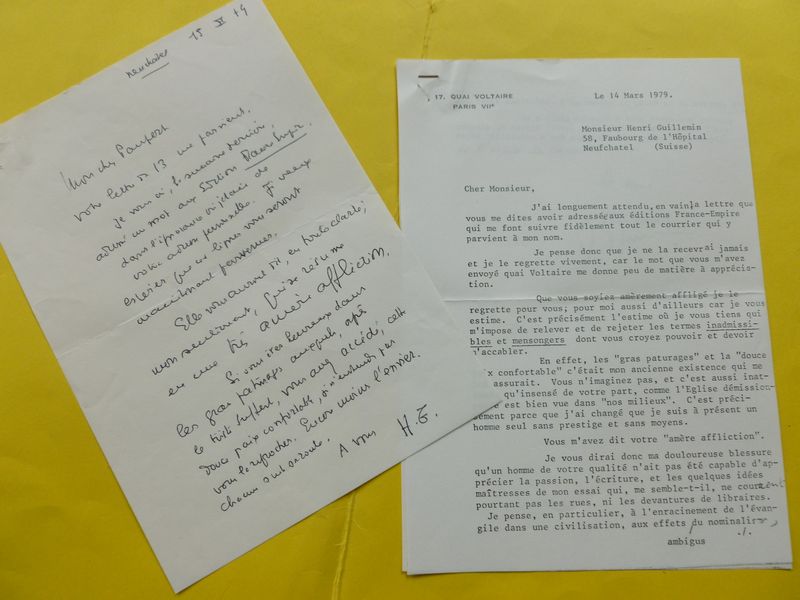 Neuchatel
15 III 79
Mon cher Paupert
votre lettre du 13 me parvient.
Je vous ai, la semaine dernière,
adressé un mot aux Editions France Empire
dans l'ignorance où j'étais de
votre adresse personnelle. Je veux
espérer que ces lignes vous seront
maintenant parvenues.
Elles vous auront dit, en toute clarté,
mon sentiment, qui se résume
en une très amère affliction.
Si vous êtes heureux dans
les gras paturages auxquels, après
vous avez accédé, cette
douce paix confortable, je n'entends pas
vous la reprocher. Encore moins l'envier.
Chacun suit sa route.
A vous
H. G.
17. QUAI VOLTAIRE
PARIS VIIe
Le 14 Mars 1979.
Monsieur Henri Guillemin
58, Faubourg de l'Hôpital
Neufchatel (Suisse)
Cher Monsieur,
J'ai longuement attendu, en vain, la lettre que
vous me dites avoir adressée aux éditions France-Empire
qui me font suivre fidèlement tout le courrier qui y
parvient à mon nom.
Je pense donc que je ne la recevrai jamais
et je le regrette vivement, car le mot que vous m'avez
envoyé quai Voltaire me donne peu de matière à apprécia-
tion.
Que vous soyiez amèrement affligé je le
regrette pour vous; pour moi aussi d'ailleurs car je vous
estime. C'est précisément l'estime où je vous tiens qui
m'impose de relever et de rejeter les termes inadmissi-
bles et mensongers dont vous croyez pouvoir et devoir
m'accabler.
En effet, les "gras paturages" et la "douce
ix confortable" c'était mon ancienne existence qui me
assurait. Vous n'imaginez pas, et c'est aussi inat-
qu'insensé de votre part, comme l'Eglise démission-
e est bien vue dans "nos milieux". C'est préci-
sément parce que j'ai changé que je suis à présent un
homme seul sans prestige et sans moyens.
Vous m'avez dit votre "amère affliction".
Je vous dirai donc ma douloureuse blessure
qu'un homme de votre qualité n'ait pas été capable d'ap-
précier la passion, l'écriture, et les quelques idées
maîtresses de mon essai qui, me semble-t-il, ne courent
pourtant pas les rues, ni les devantures de libraires.
Je pense, en particulier, à l'enracinement de l'évan-
gile dans une civilisation, aux effets du nominalisme,
./.
ambigus